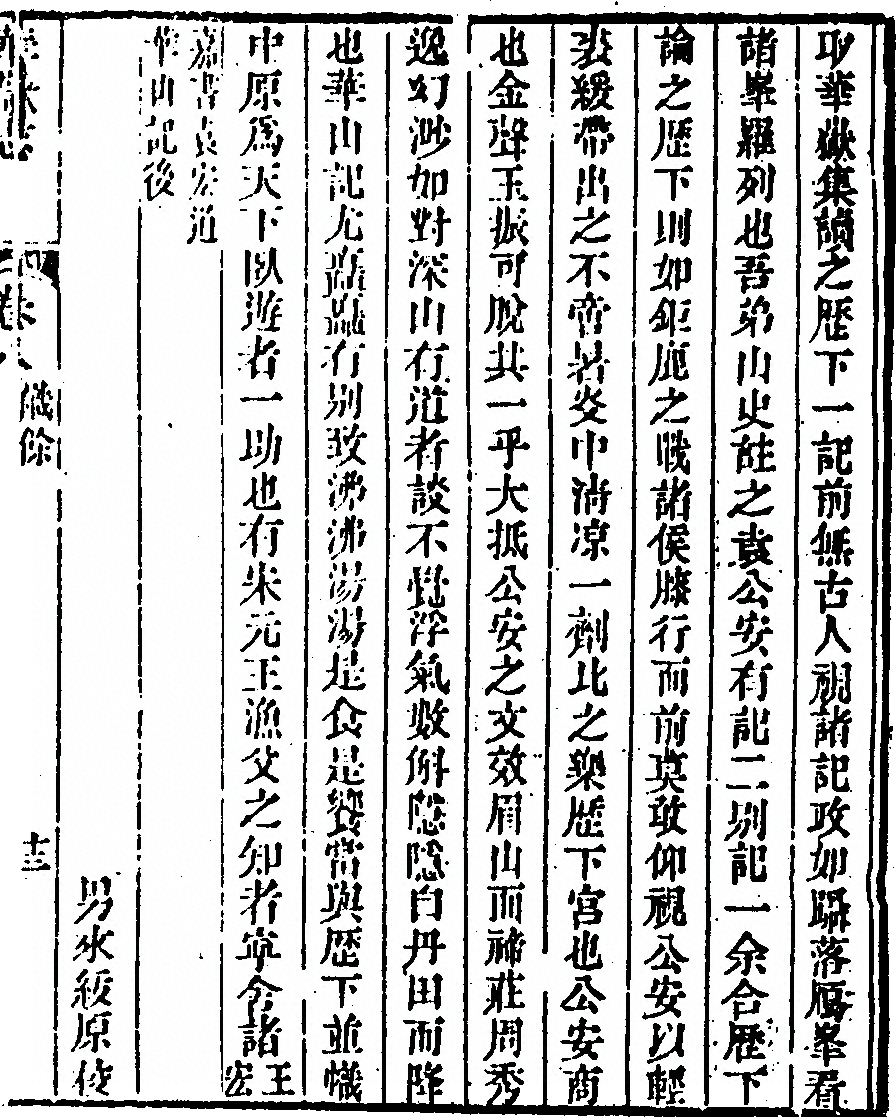 取華嶽集讀之歷下一記前無古人視諸記政如躡落鴈峯看
諸峯羅列也吾弟山史註之袁公安有記二別記一余合歷下
論之歷下則如鉅鹿之戰諸侯膝行而前莫敢仰視公安以輕
裘緩帶出之不啻暑炎中淸凉一劑比之樂歷下宮也公安商
也金聲玉振可脫其一乎大抵公安之文效眉山而禘莊周秀
逸幻渺如對深山有道者談不覺浮氣數斛隱隱自丹田而降
也華山記尤囂囂有別致沸沸湯湯是食是饗當與歷下並幟
中原爲天下臥遊者一助也有朱元王漁父之知者寧舍諸王宏
嘉書袁宏道
華山記後
男水紱原
卷
識餘
十三